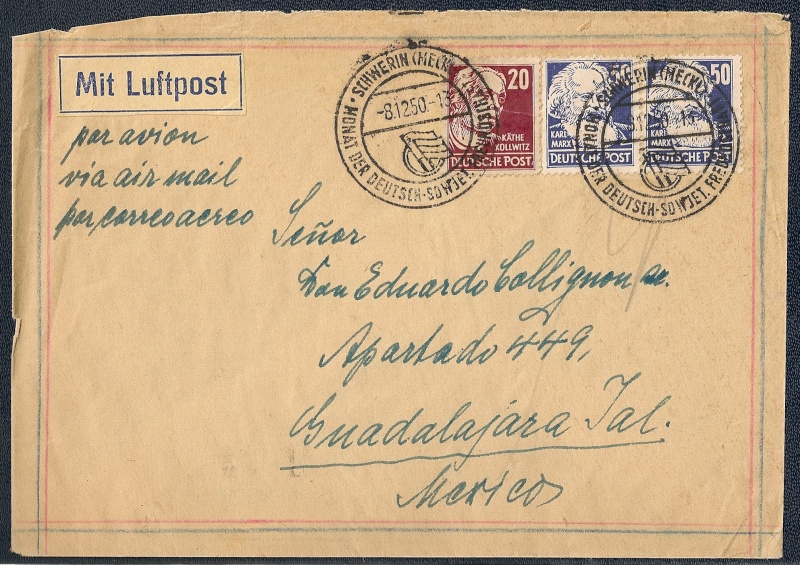 Mit Luftpost
par avion
via air mail
por correo aereo
SCHWERIN (MECK)
-8.12.50.-13
MONAT DER DEUTSCH-SOWJET.
20
KÄTHE
KOLLWITZ
DEUTSCHE POST
50
KARL
MARX
DEUTSCHE POST
50
KARL
MARX
DEUTSCHE POST
SCHWERIN (MECK)
MONAT DER DEUTSCH-SOWJET.
Señor
Don Eduardo Collignon
Apartado 449,
Guadalajára Jal.
Mexico